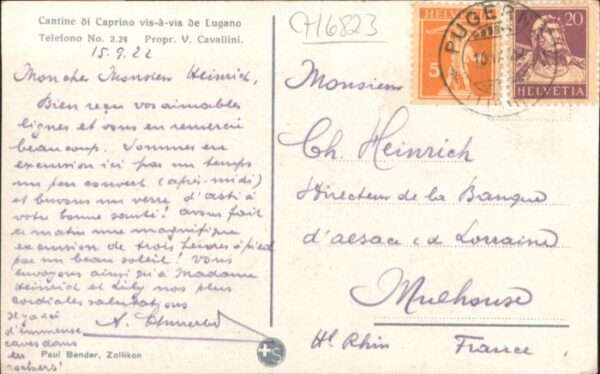 Cantine di Caprino vis-à-vis de Lugano
Telefono No. 2.24 Propr. V. Cavallini.
15.9.22
Mon cher Monsieur Heinrich,
Bien reçu vos aimables
lignes et vous en remercie
beaucoup. Sommes en
excursion ici par un temps
un peu couvert (après-midi)
et buvons un verre d'asti à
votre bonne santé! Avons fait
ce matin une magnifique
excursion de trois heures à pied
par un beau soleil! Vous
envoyons ainsi qu'à Madame
Heinrich et Lily nos plus
cordiales salutations
Il y a ici
d'immenses
caves dans
les
rochers!
A.
Paul Bender, Zollikon
+S
CH16823
PUGER
5
HELVETIA
20
HELVETIA
Monsieur
Ch. Heinrich
Directeur de la Banque
d'alsace & d Lorraine
Mulhouse
Ht Rhin France